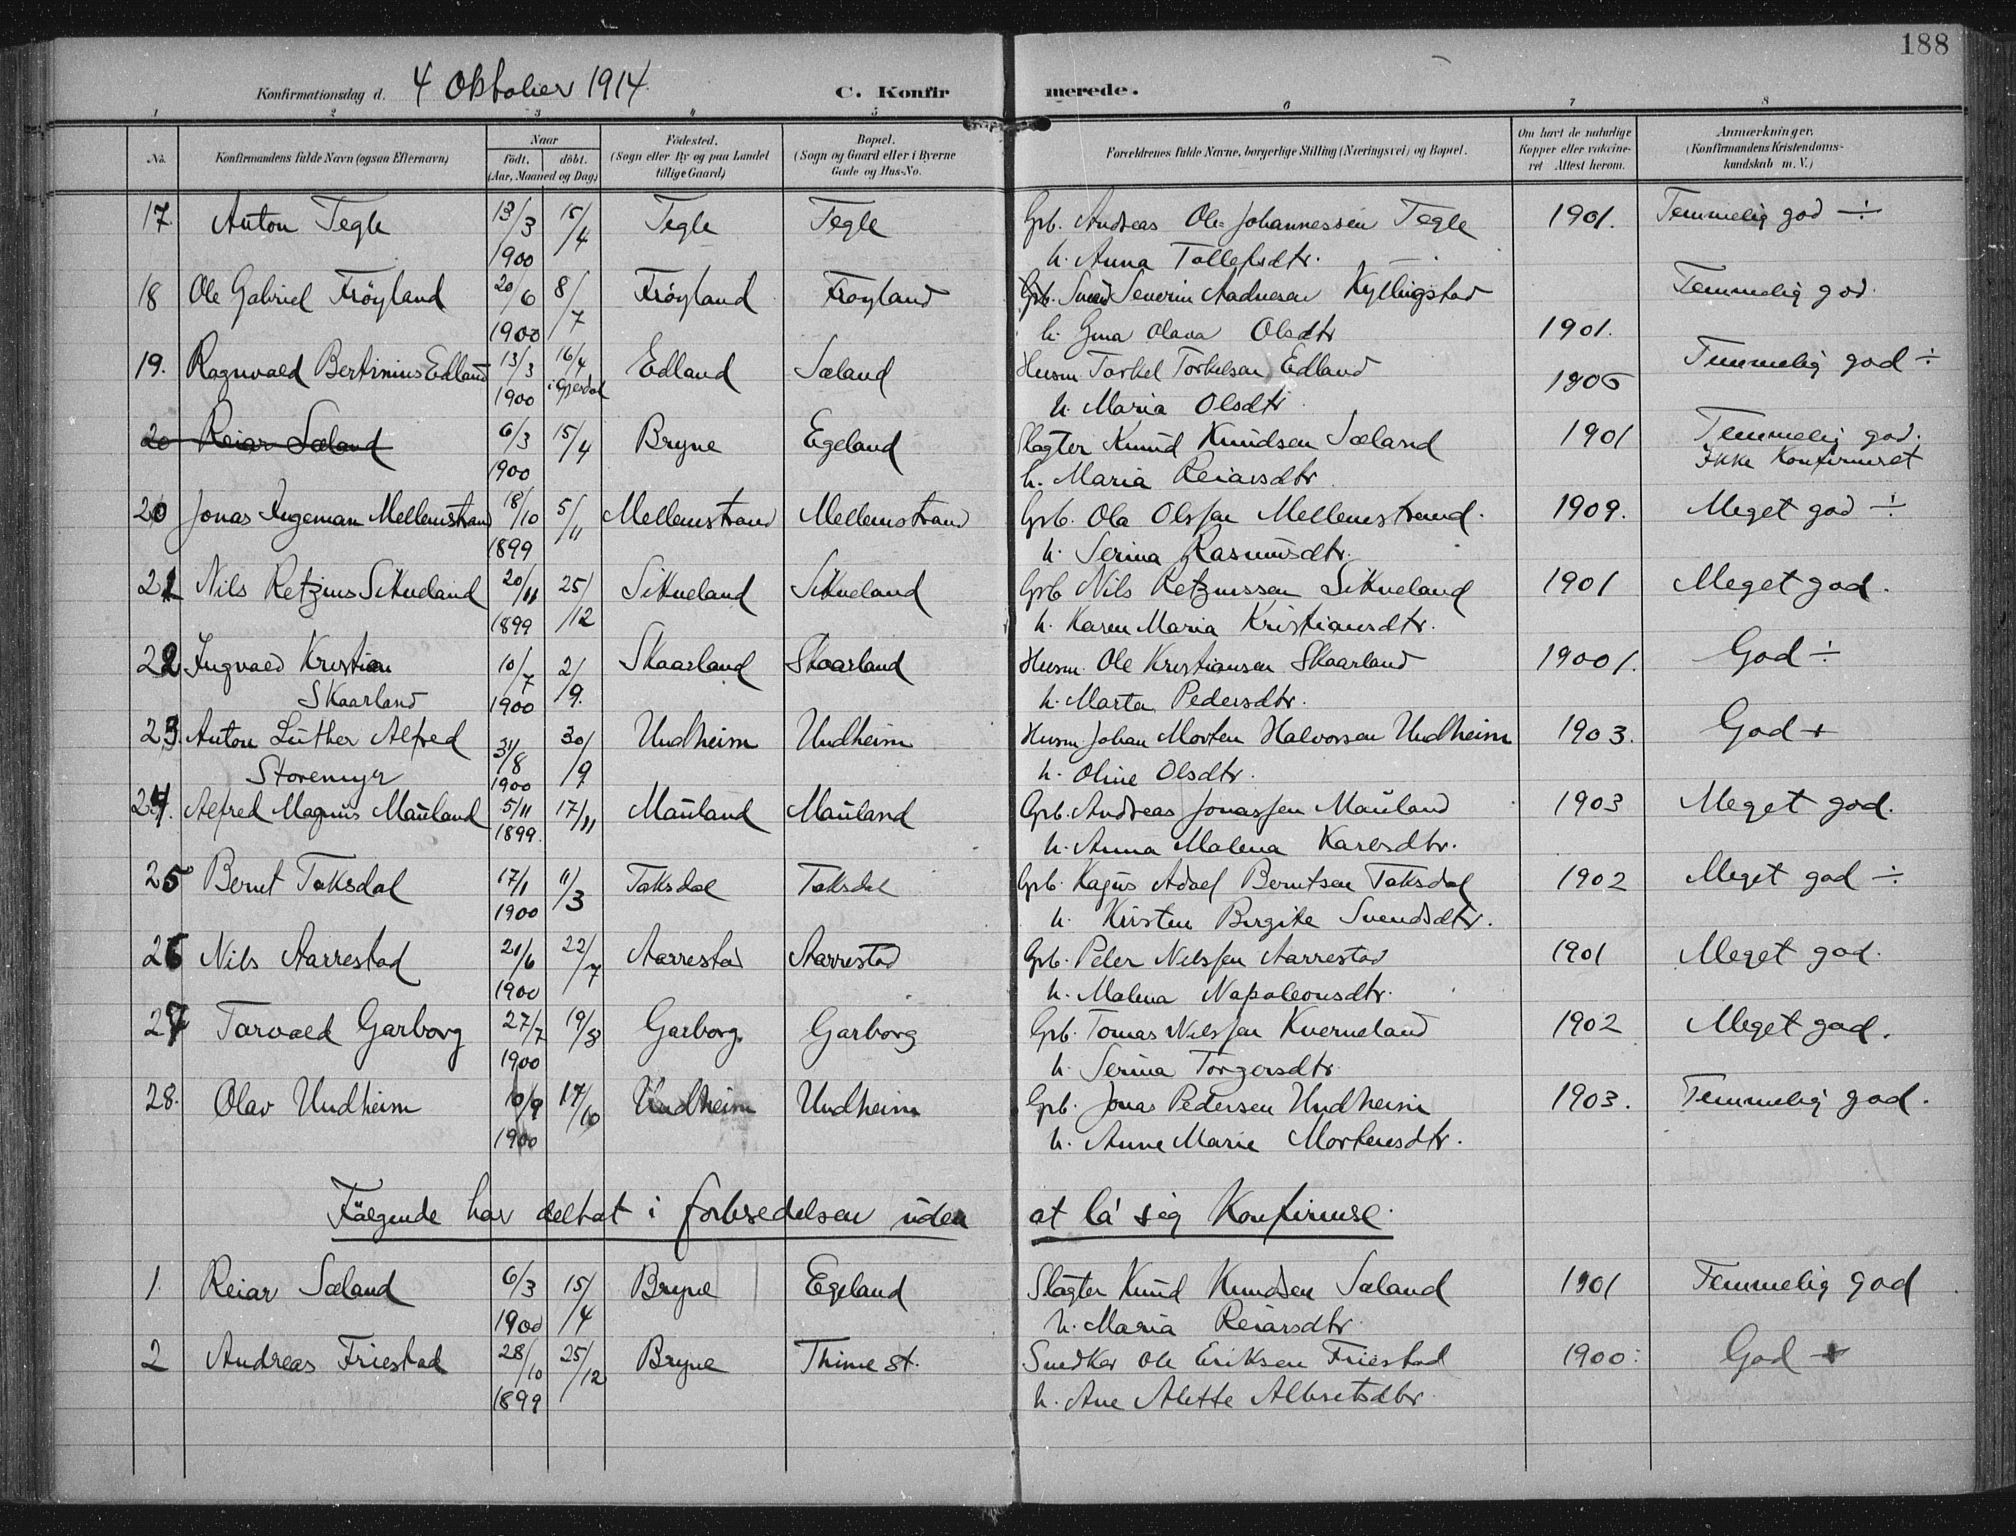 188
Konfirmationsdag d. 4 Oktober 1914. C. Konfirmerede.
1 2 3 4 5 6 7 8
No. Konfirmandens fulde Navn (ogsaa Efternavn) Naar født. døbt. (Aar, Maaned og Dag) Fødested. (Sogn eller By og paa Landet tillige Gaard) Bopæl. (Sogn og Gaard eller i Byerne Gade og Hus-No. Forældrenes fulde Navne, borgerlige Stilling (Næringsvei) og Bopæl. Om havt de naturlige Kopper eller vakcineret Attest herom. Anmærkninger. (Konfirmandens Kristendomskundskab m. V.)
17. Anton Tegle 13/3 15/4 Tegle Tegle Grb. Andreas Ole Johannessen Tegle 1901. Temmelig god ÷
1900 h. Anna Tollefsdtr.
18 Ole Gabriel Frøyland 20/6 8/7 Frøyland Frøyland Grb. Svend Severin Aadnesen Kyllingstad Temmelig god.
1900 h. Gina Olava Olsdtr 1901.
19. Ragnvald Bertinius Edland 13/3 16/4 Edland Sæland Husm. Torkel Torkelsen Edland Temmelig god ÷
1900 i Gjesdal h. Maria Olsdtr. 1906
20 Reiar Sæland 6/3 15/4 Bryne Egeland Slagter Knud Knudsen Sæland 1901 Temmelig god.
1900 h. Maria Reiarsdtr. Ikke Konfirmeret
20 Jonas Ingeman Mellemstrand 18/10 5/11 Mellemstrand Mellemstrand Grb. Ola Olsen Mellemstrand. 1909. Meget god ÷
1899 h. Serina Rasmusdtr.
21 Nils Retzius Sikveland 20/11 25/12 Sikveland Sikveland Grb Nils Retziussen Sikveland 1901 Meget god.
1899 h. Karen Maria Kristiansdtr.
22 Ingvald Kristian 10/7 2/9. Skaarland Skaarland Husm. Ole Kristiansen Skaarland 1900 God ÷
Skaarland 1900 h. Marta Pedersdtr.
23. Anton Luther Alfred 31/8 30/9 Undheim Undheim Husm. Johan Morten Halvorsen Undheim 1903. God +
Storemyr 1900 h. Oline Olsdtr.
24. Alfred Magnus Mauland 5/11 17/11 Mauland Mauland Grb. Andreas Jonassen Mauland 1903 Meget god.
1899. h. Anna Malena Karlsdtr.
25 Bernt Taksdal 17/1 11/3 Taksdal Taksdal Grb. Adolf Berntsen Taksdal 1902 Meget god ÷
1900 h. Kristen Birgite Svendsdtr.
26 Nils Aarrestad 21/6 22/7 Aarrestad Aarrestad Grb. Peder Nilssen Aarrestad 1901 Meget god.
1900 h. Malena Napoleonsdtr.
27 Torvald Garborg 27/7 19/8 Garborg. Garborg Grb. Tomas Nilssen Kverneland 1902 Meget god.
1900 h. Serina Torgersdtr.
28. Olav Undheim 10/9 17/10 Undheim Undheim Grb. Jonas Pedersen Undheim 1903. Temmelig god.
1900 h. Anne Marie Mortensdtr.
Følgende har deltat i forberedelsen uden at la sig Konfirmere.
1. Reiar Sæland 6/3 15/4 Bryne Egeland Slagter Knud Knudsen Sæland 1901 Temmelig god
1900 h. Maria Reiarsdtr.
2 Andreas Friestad 28/10 25/12 Bryne Thime st. Snedker Ole Eriksen Friestad 1900. God +
1899 h. Ane Alette Albretsdtr.